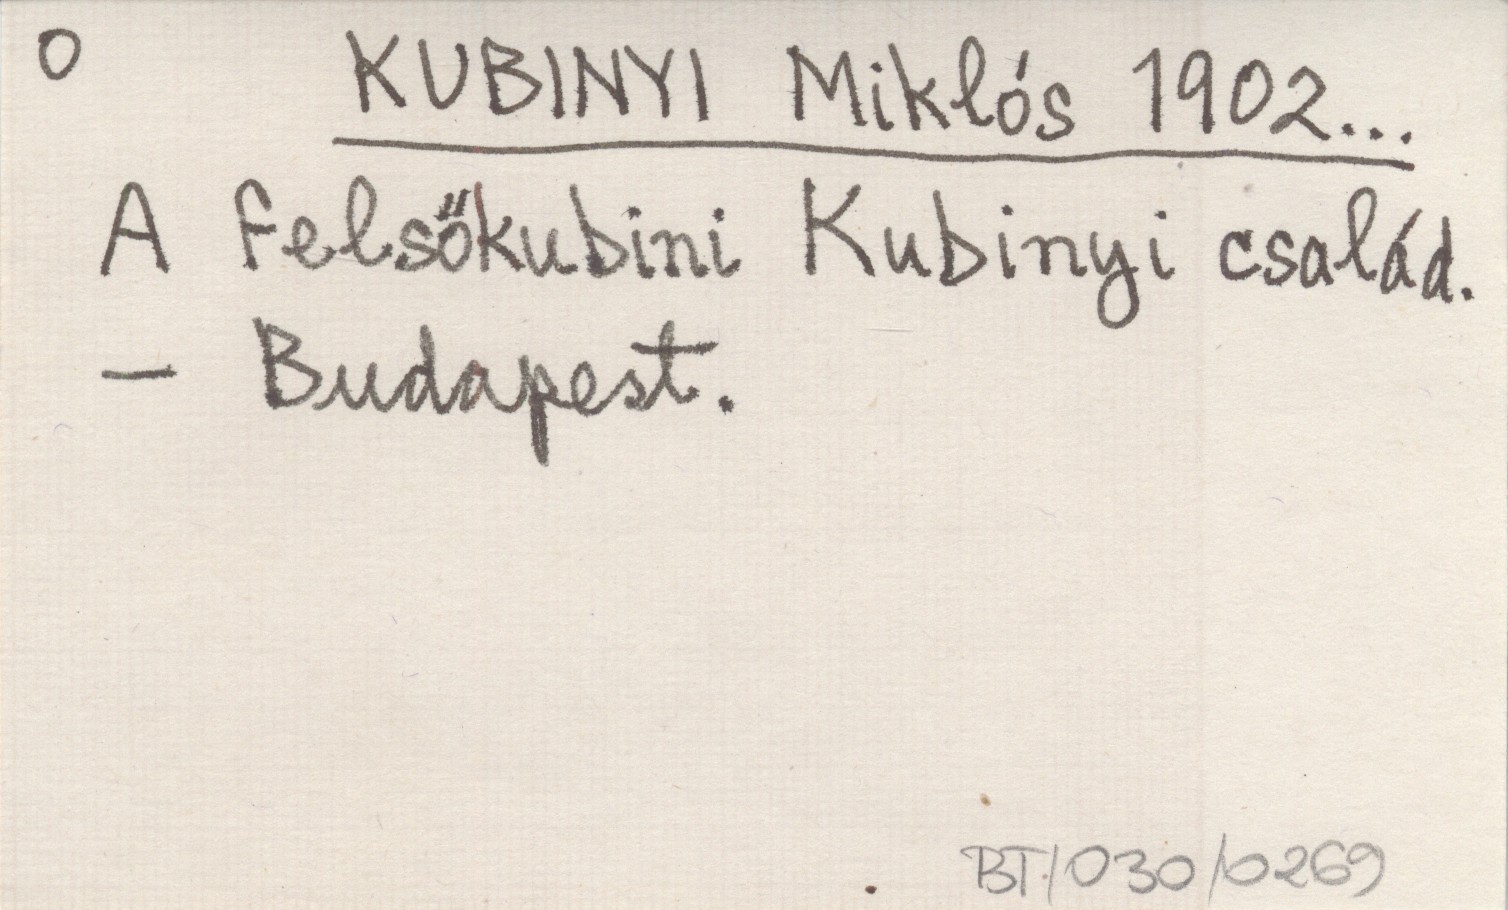 O KUBINYI Miklós 1902...
A felsőkubini Kubinyi család.
- Budapest.
BT/030/0269